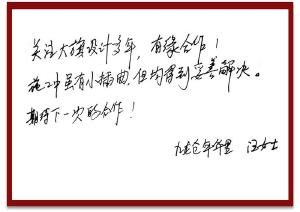 关注大旗设计多年，有缘合作！
施工中虽有小插曲，但均得到完善解决。
期待下一次的合作！
九龙仓年华里 汪女士